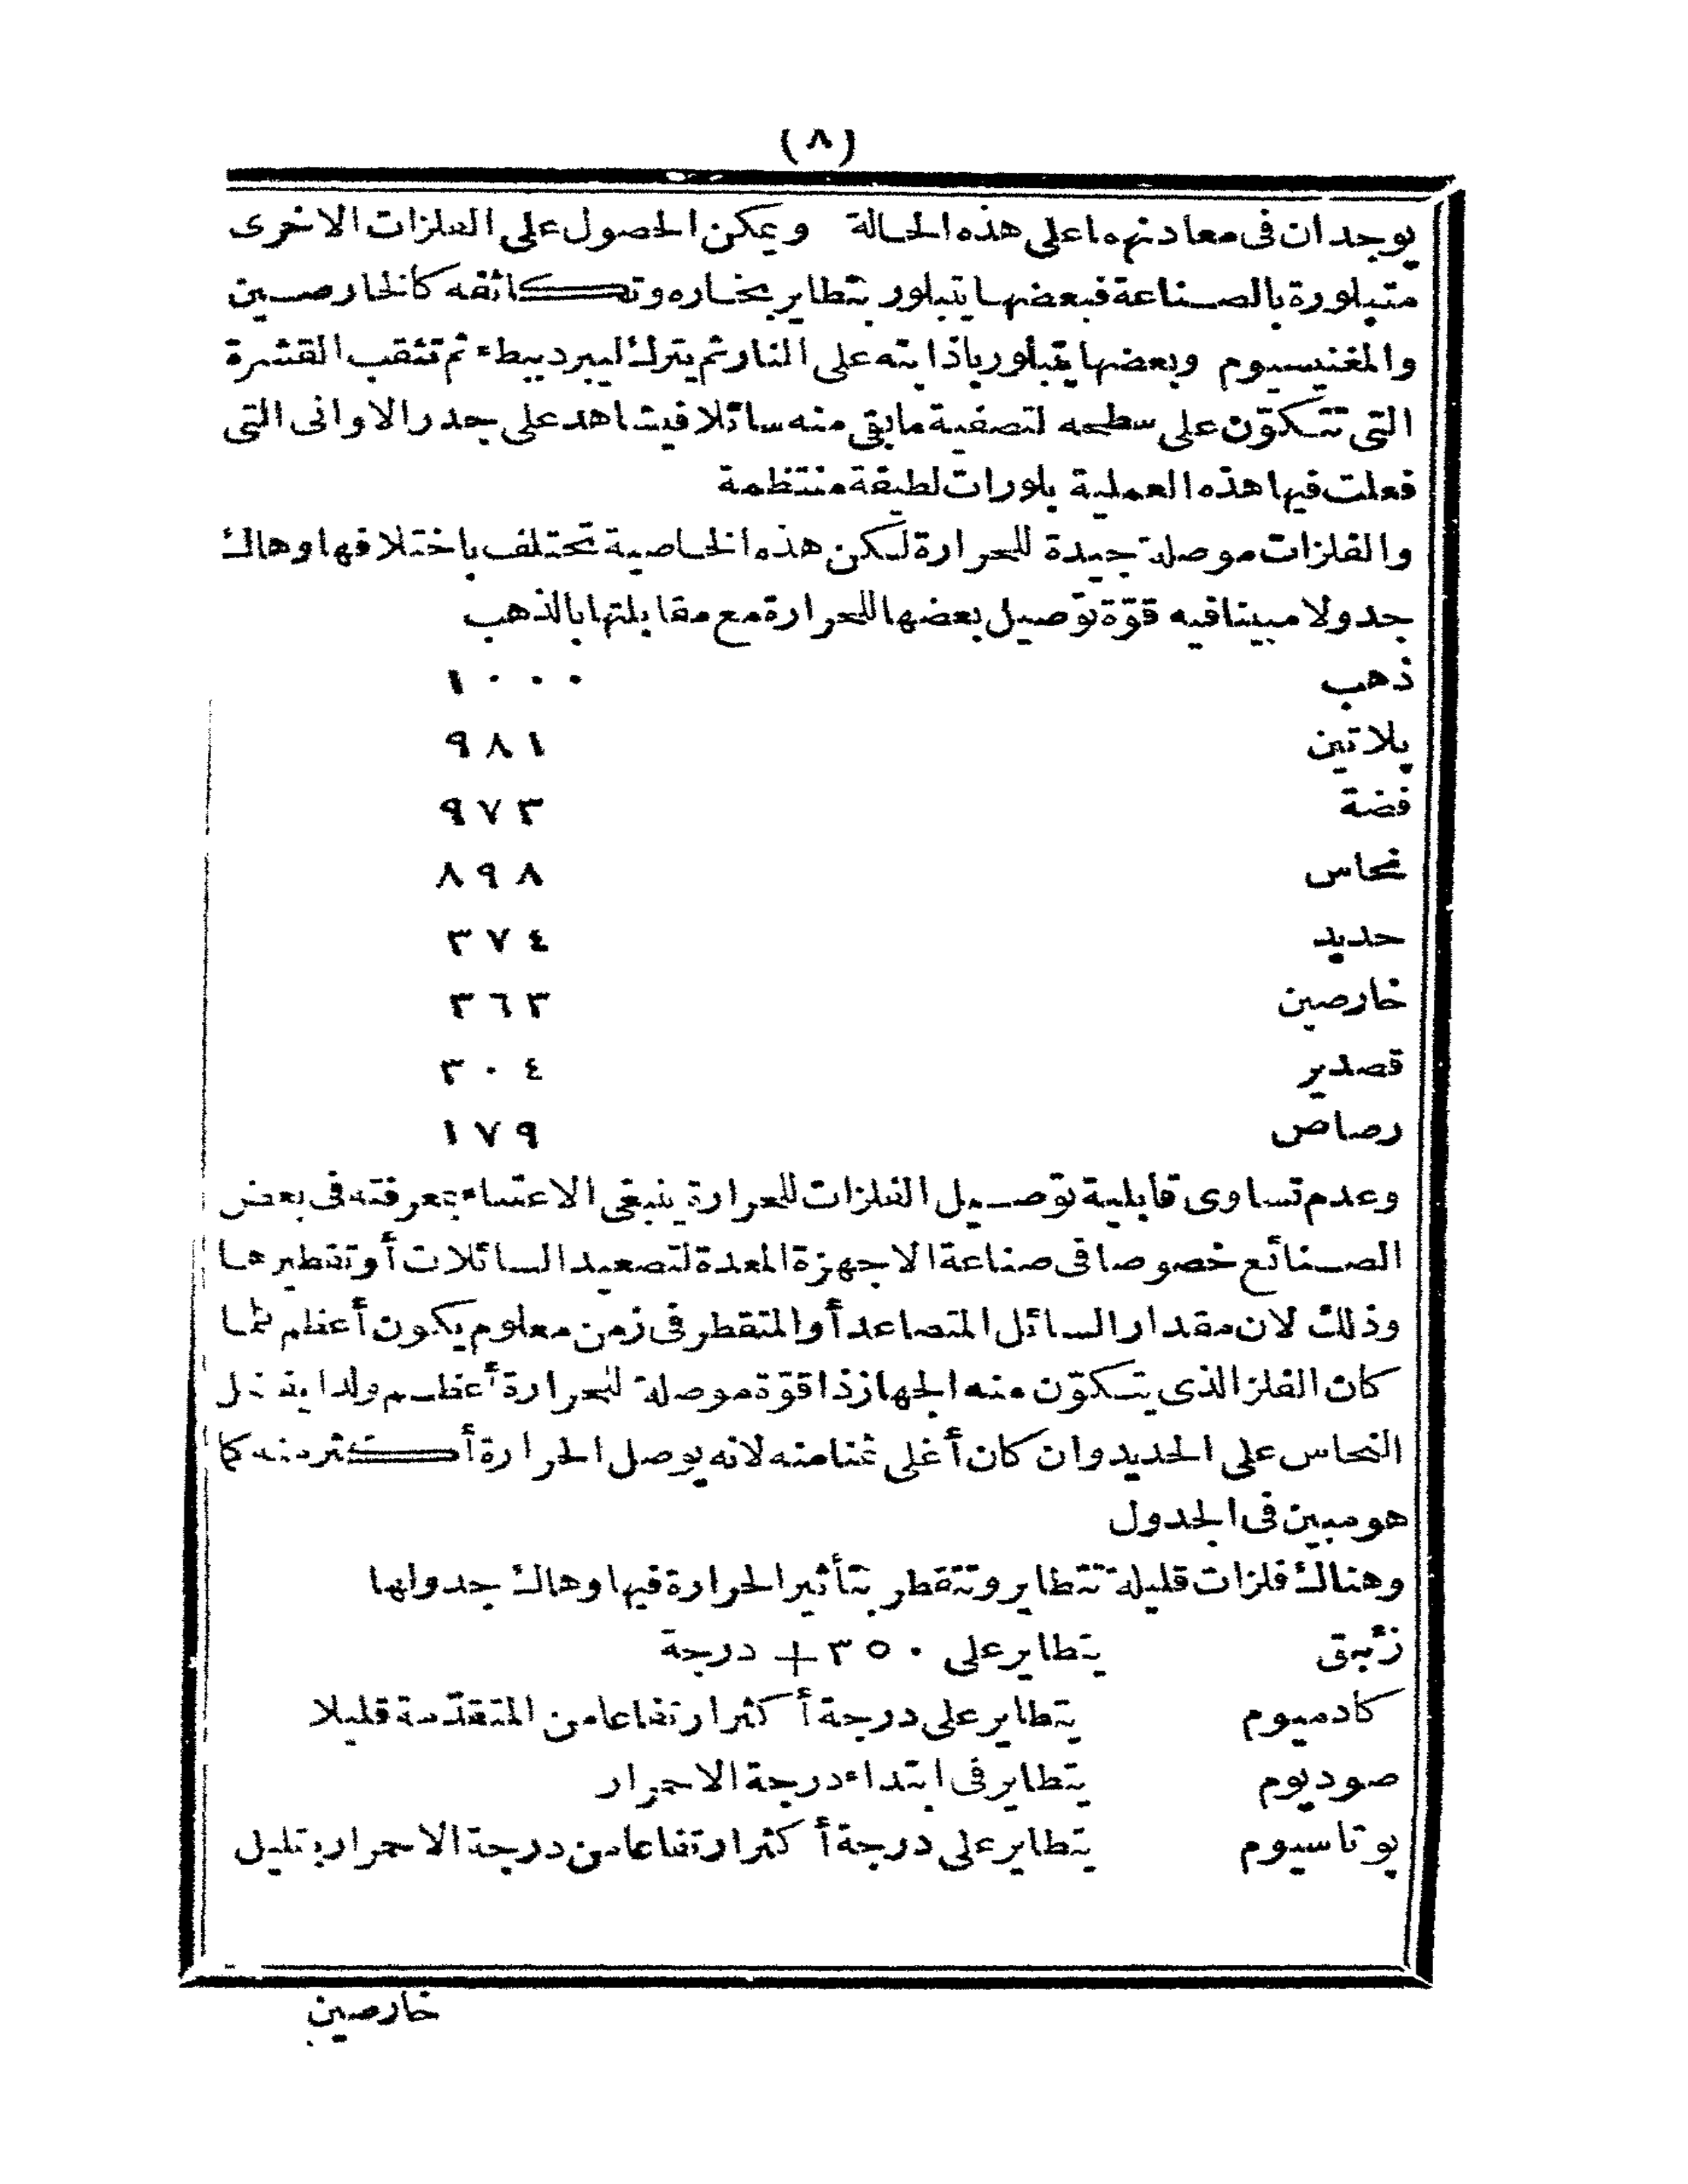 (٨)
يوجدان فى معادنهما على هذه الحالة ويمكن الحصول على الفلزات الاخرى
متبلورة بالصناعة فبعضها يتبلور بتطاير بخاره وتكاثفه كالخارصين
والمغنيسيوم وبعضها يتبلور باذابته على النار ثم يترك ليبرد ببطء ثم تثقب القشرة
التى تتكوّن على سطحه لتصفية ما بقى منه سائلا فيشاهد على جدر الاوانى التى
فعلت فيها هذه العملية بلورات لطيفة منتظمة
والفلزات موصلة جيدة للحرارة لكن هذه الخاصية تختلف باختلافها وهاك
جدولا مبينا فيه قوّة توصيل بعضها للحرارة مع مقابلتها بالذهب
ذهب ١٠٠٠
پلاتين ٩٨١
فضة ٩٧٣
نحاس ٨٩٨
حديد ٣٧٤
خارصين ٣٦٣
قصدير ٣٠٤
رصاص ١٧٩
وعدم تساوى قابلية توصيل الفلزات للحرارة ينبغى الاعتناء بمعرفته فى بعض
الصنائع خصوصا فى صناعة الاجهزة المعدة لتصعيد السائلات أوتقطيرها
وذلك لان مقدار السائل المتصاعد أو المتقطر فى زمن معلوم يكون أعظم كلما
كان الفلز الذى يتكوّن منه الجهاز ذا قوّة موصلة للحرارة أعظم ولذا يفضل
النحاس على الحديد وان كان أغلى ثمنا منه لانه يوصل الحرارة أكثر منه كما
هو مبين فى الجدول
وهناك فلزات قليلة تتطاير وتتقطر بتأثير الحرارة فيها وهاك جدولها
زئبق يتطاير على ٣٥٠ + درجة
كادميوم يتطاير على درجة أكثر ارتفاعا من المتقدّمة قليلا
صوديوم يتطاير فى ابتداء درجة الاحمرار
پوتاسيوم يتطاير على درجة أكثر ارتفاعا من درجة الاحمرار بقليل
خارصين